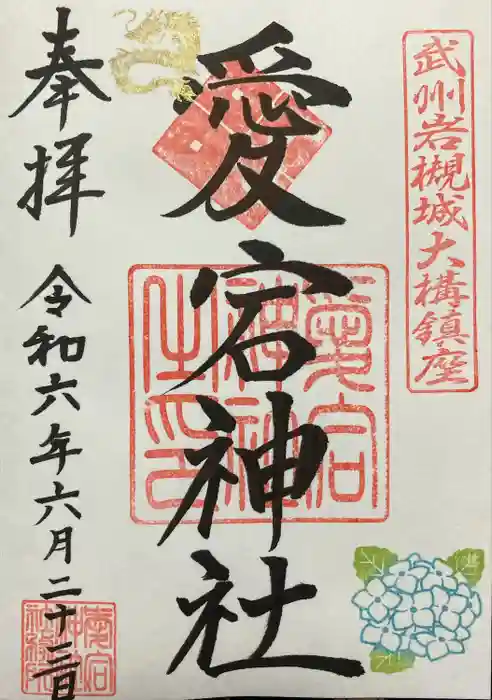 武州岩槻城大構鎮座
愛宕神社
愛宕神社之印
奉拝
令和六年六月二十三日